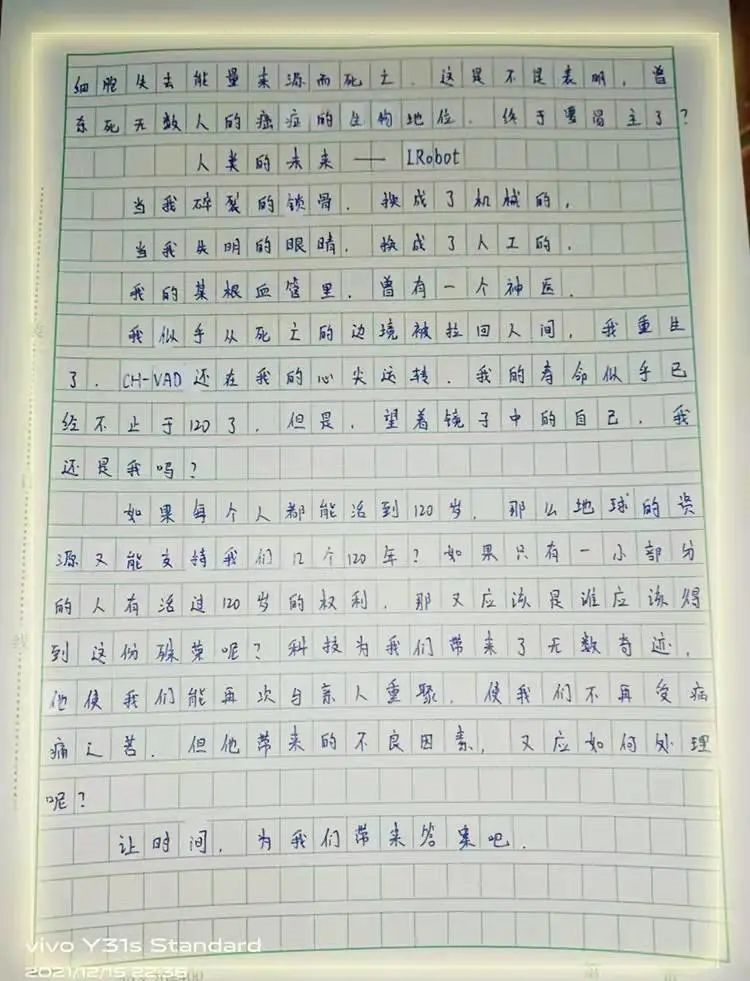 细胞失去能量来源而死亡。这是不是表明，曾
杀死无数人的癌症的生物地位，终于要易主了？
人类的未来——I,Robot
当我碎裂的锁骨，换成了机械的，
当我失明的眼睛，换成了人工的，
我的某根血管里，曾有一个神医，
我似乎从死亡的边境被拉回人间，我重生
了，CH-VAD还在我的心尖运转，我的寿命似乎已
经不止于120了，但是，望着镜子中的自己，我
还是我吗？
如果每个人都能活到120岁，那么地球的资
源又能支持我们几个120年？如果只有一小部分
的人有活过120岁的权利，那又应该是谁应该得
到这份殊荣呢？科技为我们带来了无数奇迹，
他使我们能再次与亲人重聚，使我们不再受病
痛之苦，但他带来的不良因素，又应如何处理
呢？
让时间，为我们带来答案吧。
vivo Y31s Standard
2021/12/15 22:38